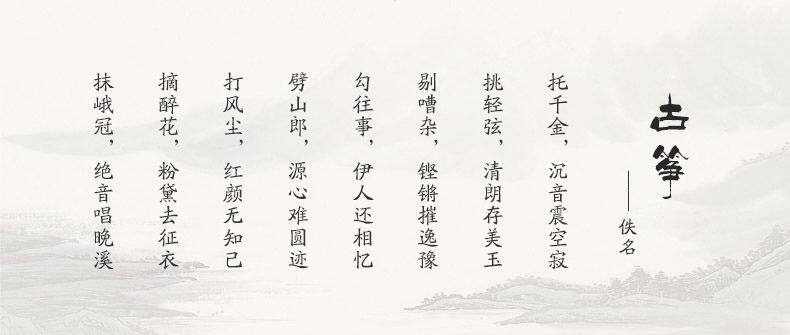 古筝
——佚名
托千金，沉音震空寂
挑轻弦，清朗存美玉
剔嘈杂，铿锵摧逸豫
勾往事，伊人还相忆
劈山郎，源心难圆迹
打风尘，红颜无知己
摘醉花，粉黛去征衣
抹峨冠，绝音唱晚溪